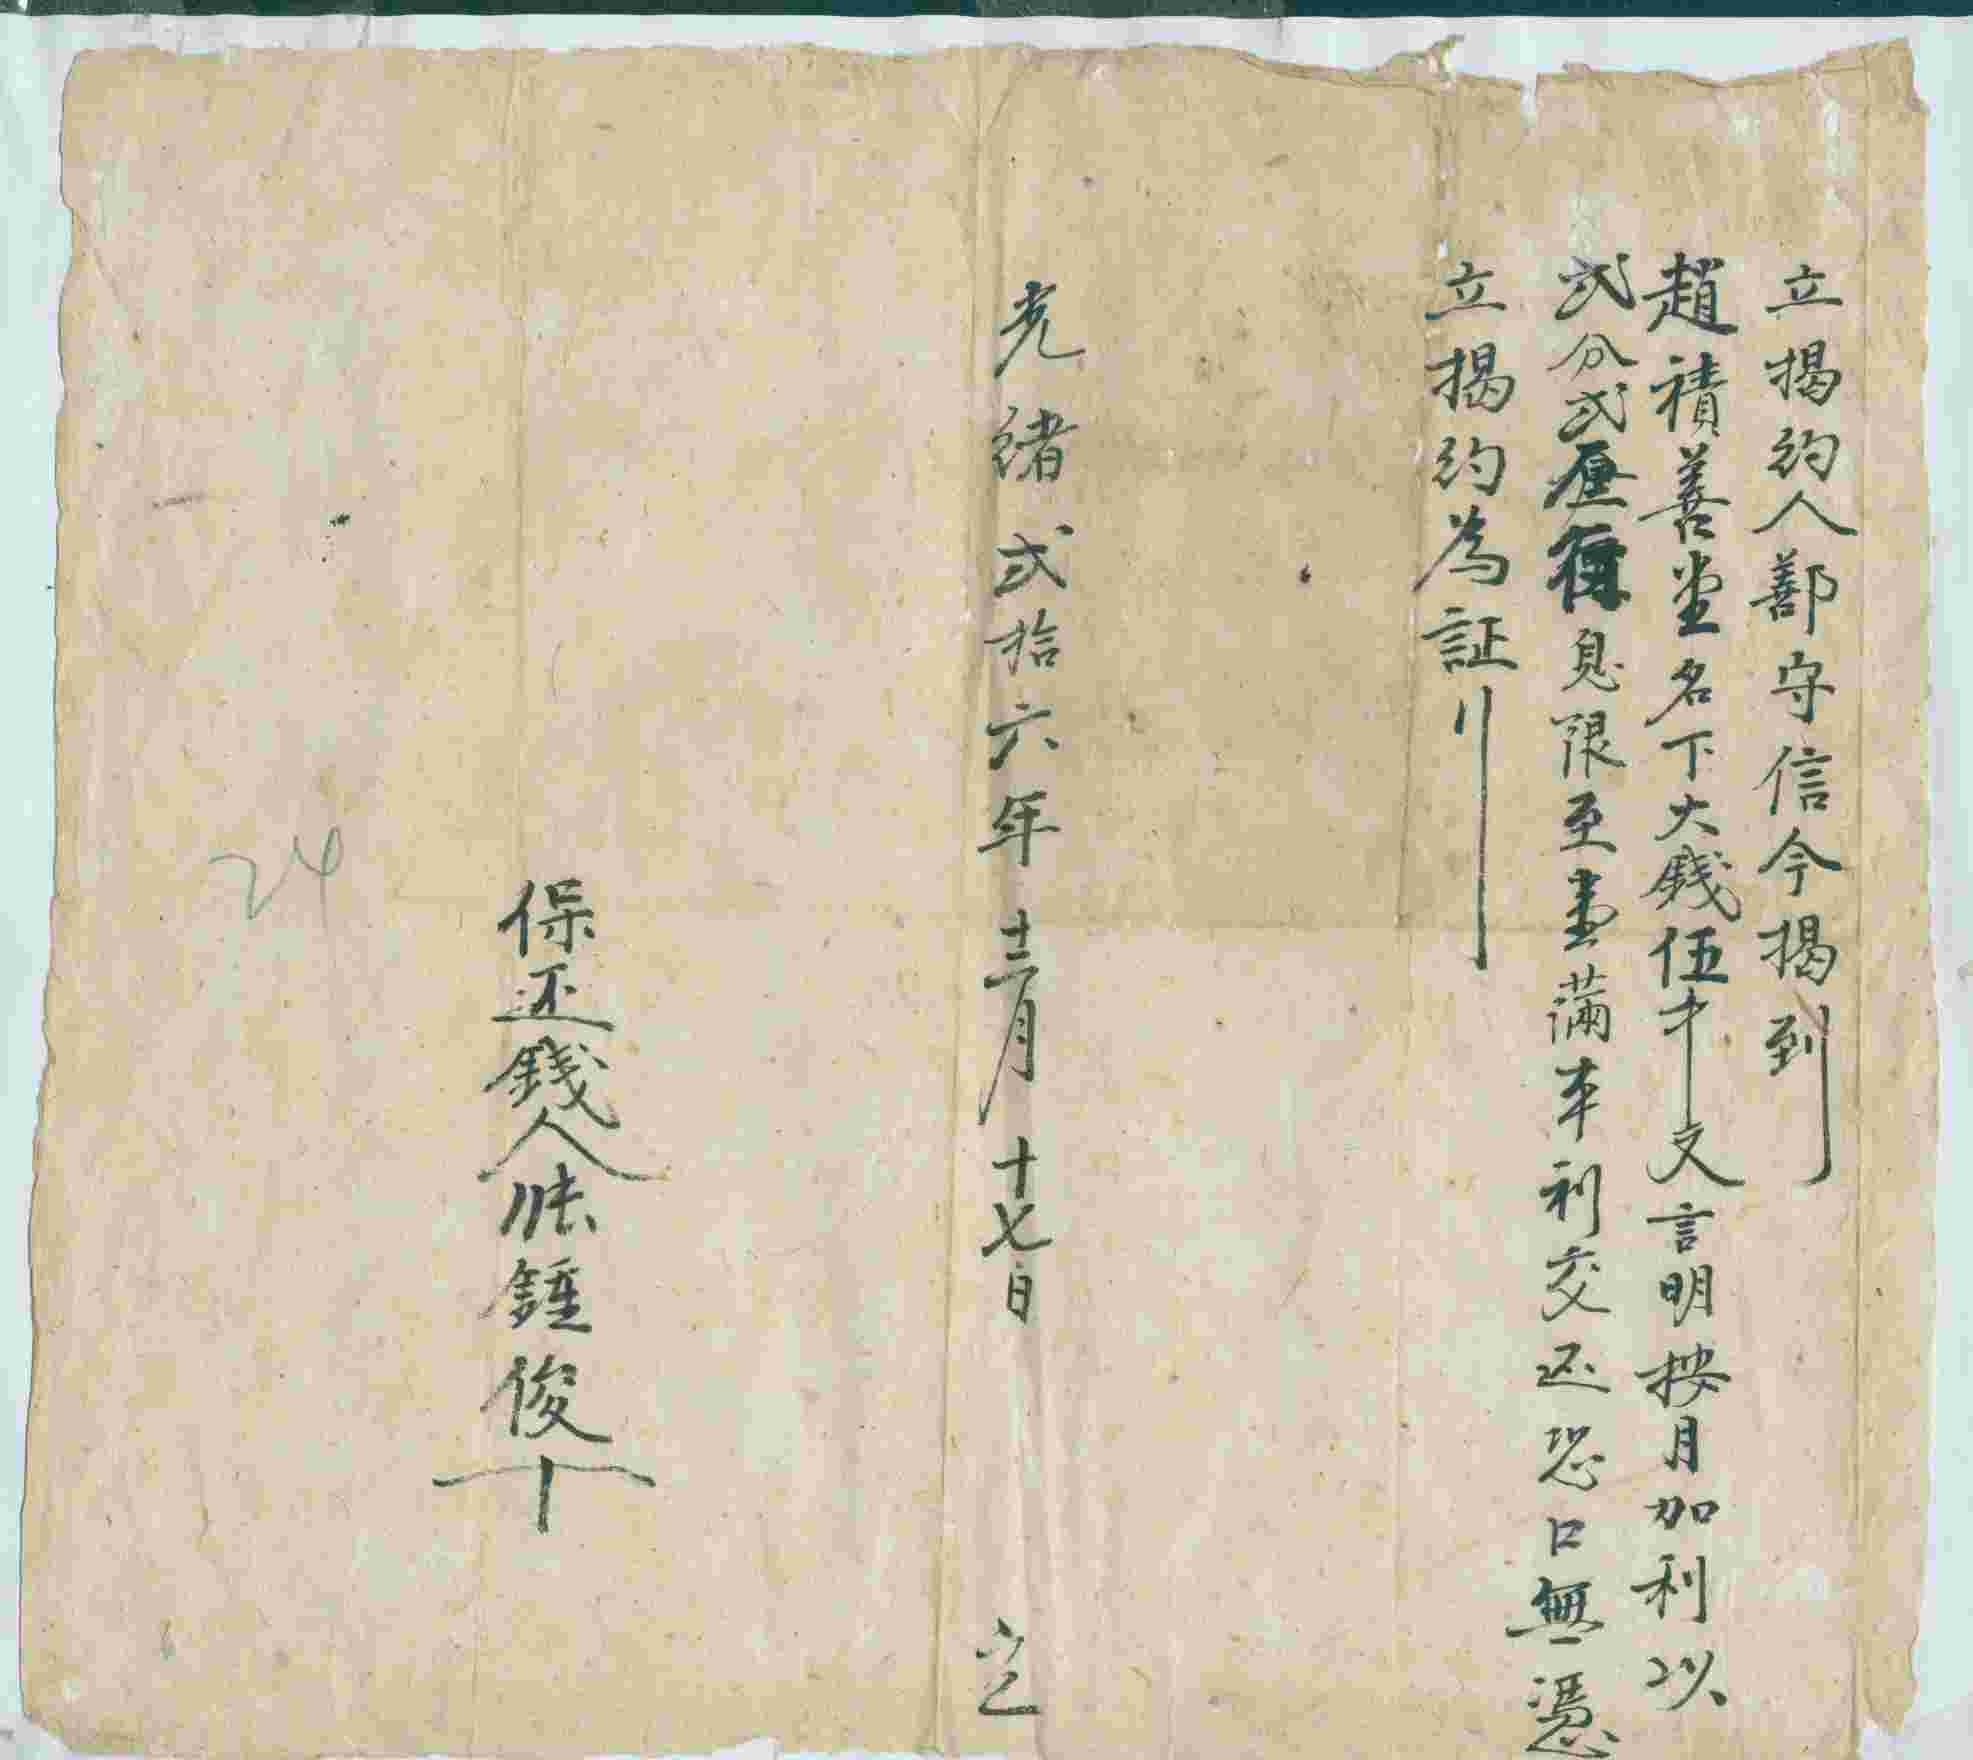 立揭約人鄯守信今揭到
趙積善堂名下大錢伍千文言明按月加利以
弍分弍厘行息限至書滿本利交还恐口無憑
立揭約為証
光緒弍拾六年十二月十七日 立
保还錢人張鍾俊十
24